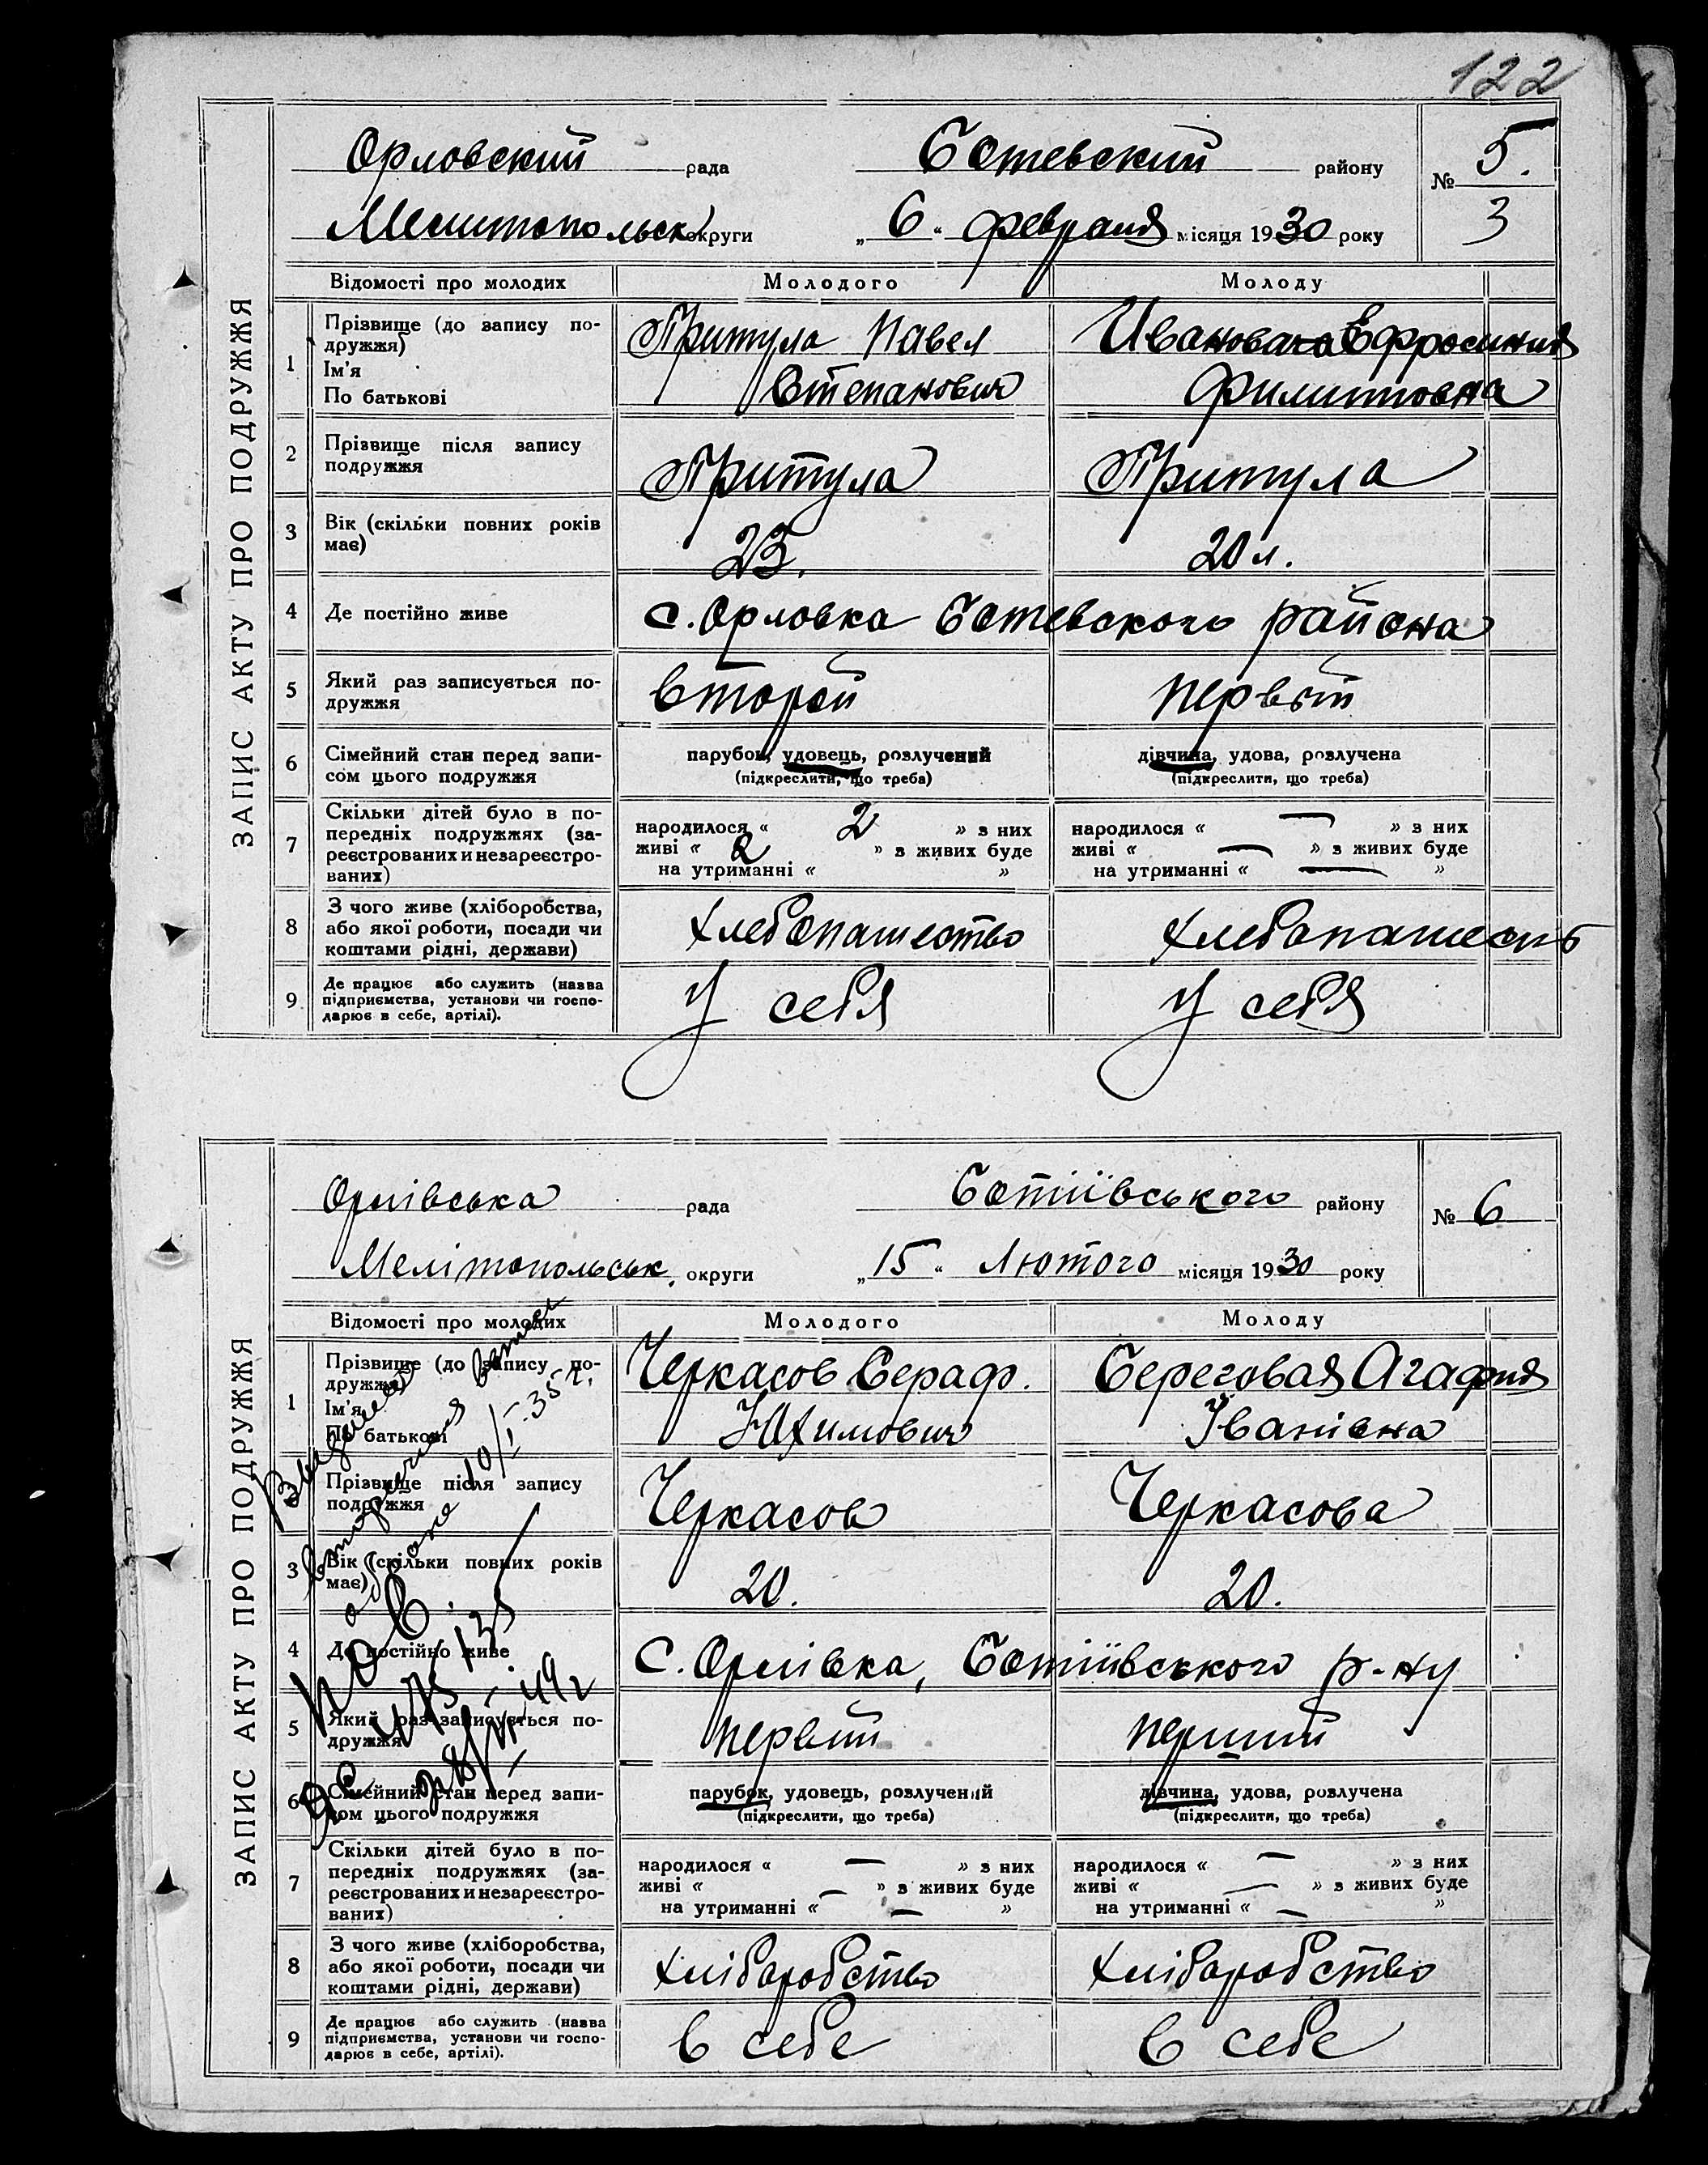 122
ЗАПИС АКТУ ПРО ПОДРУЖЖЯ
Орловский рада Ботевский району № 5.
Мелитопольск округи „ 6 “ февраля місяця 1930 року 3
Відомості про молодих Молодого Молоду
1 Прізвище (до запису по-
дружжя)
Ім'я
По батькові
Притула Павел
Степанович
Ефросиния
Филиповна
2 Прізвище після запису
подружжя
Притула Притула
3 Вік (скільки повних років
має)
23. 20 л.
4 Де постійно живе с. Орловка Ботевского района
5 Який раз записується по-
дружжя
второй первый
6 Сімейний стан перед запи-
сом цього подружжя
парубок, удовець, розлучений
(підкреслити, що треба)
дівчина, удова, розлучена
(підкреслити, що треба)
7 Скільки дітей було в по-
передніх подружжях (за-
реєстрованих и незареєстро-
ваних)
народилося « 2 » з них
живі « 2 » з живих буде
на утриманні « »
народилося « — » з них
живі « — » з живих буде
на утриманні « — »
8 З чого живе (хліборобства,
або якої роботи, посади чи
коштами рідні, держави)
хлебопашество хлебопашеств
9 Де працює або служить (назва
підприємства, установи чи госпо-
дарює в себе, артілі).
у себя у себя
ЗАПИС АКТУ ПРО ПОДРУЖЖЯ
Орлівська рада Ботіївського району № 6
Мелітопольськ. округи „ 15 “ Лютого місяця 1930 року
Відомості про молодих Молодого Молоду
1 Прізвище (до запису по-
дружжя)
Ім'я
По батькові
Черкасов Сераф.
Юхимович
Береговая Агафия
Іванівна
2 Прізвище після запису
подружжя
Черкасов Черкасова
3 Вік (скільки повних років
має)
20. 20.
4 Де постійно живе С. Орлівка, Ботіївського р-ну
5 Який раз записується по-
дружжя
первий перший
6 Сімейний стан перед запи-
сом цього подружжя
парубок, удовець, розлучений
(підкреслити, що треба)
дівчина, удова, розлучена
(підкреслити, що треба)
7 Скільки дітей було в по-
передніх подружжях (за-
реєстрованих и незареєстро-
ваних)
народилося « — » з них
живі « — » з живих буде
на утриманні « — »
народилося « — » з них
живі « — » з живих буде
на утриманні « — »
8 З чого живе (хліборобства,
або якої роботи, посади чи
коштами рідні, держави)
хліборобство хліборобство
9 Де працює або служить (назва
підприємства, установи чи госпо-
дарює в себе, артілі).
в себе в себе
10/I-35 г.